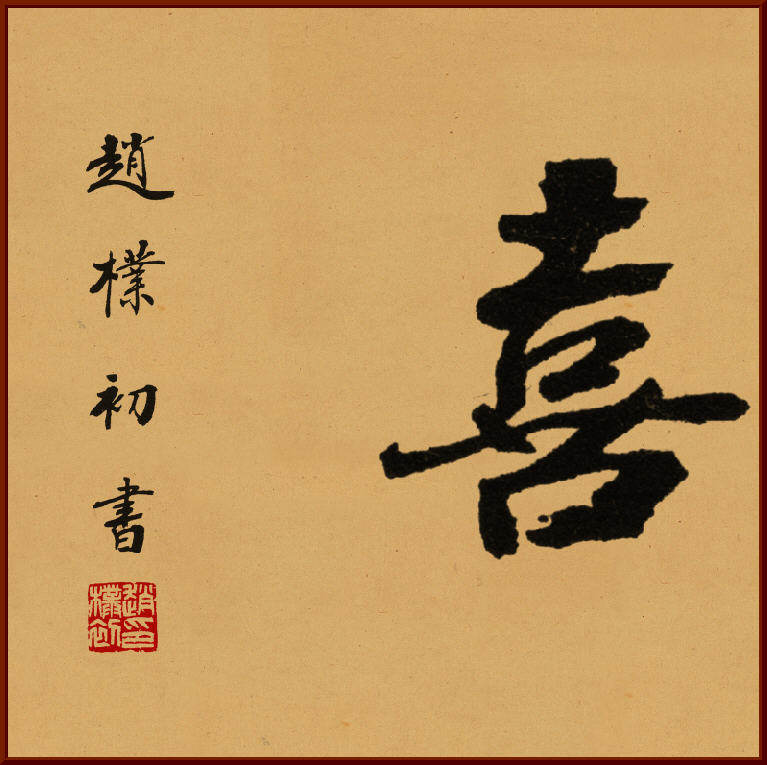 喜
趙樸初書
趙印樸初